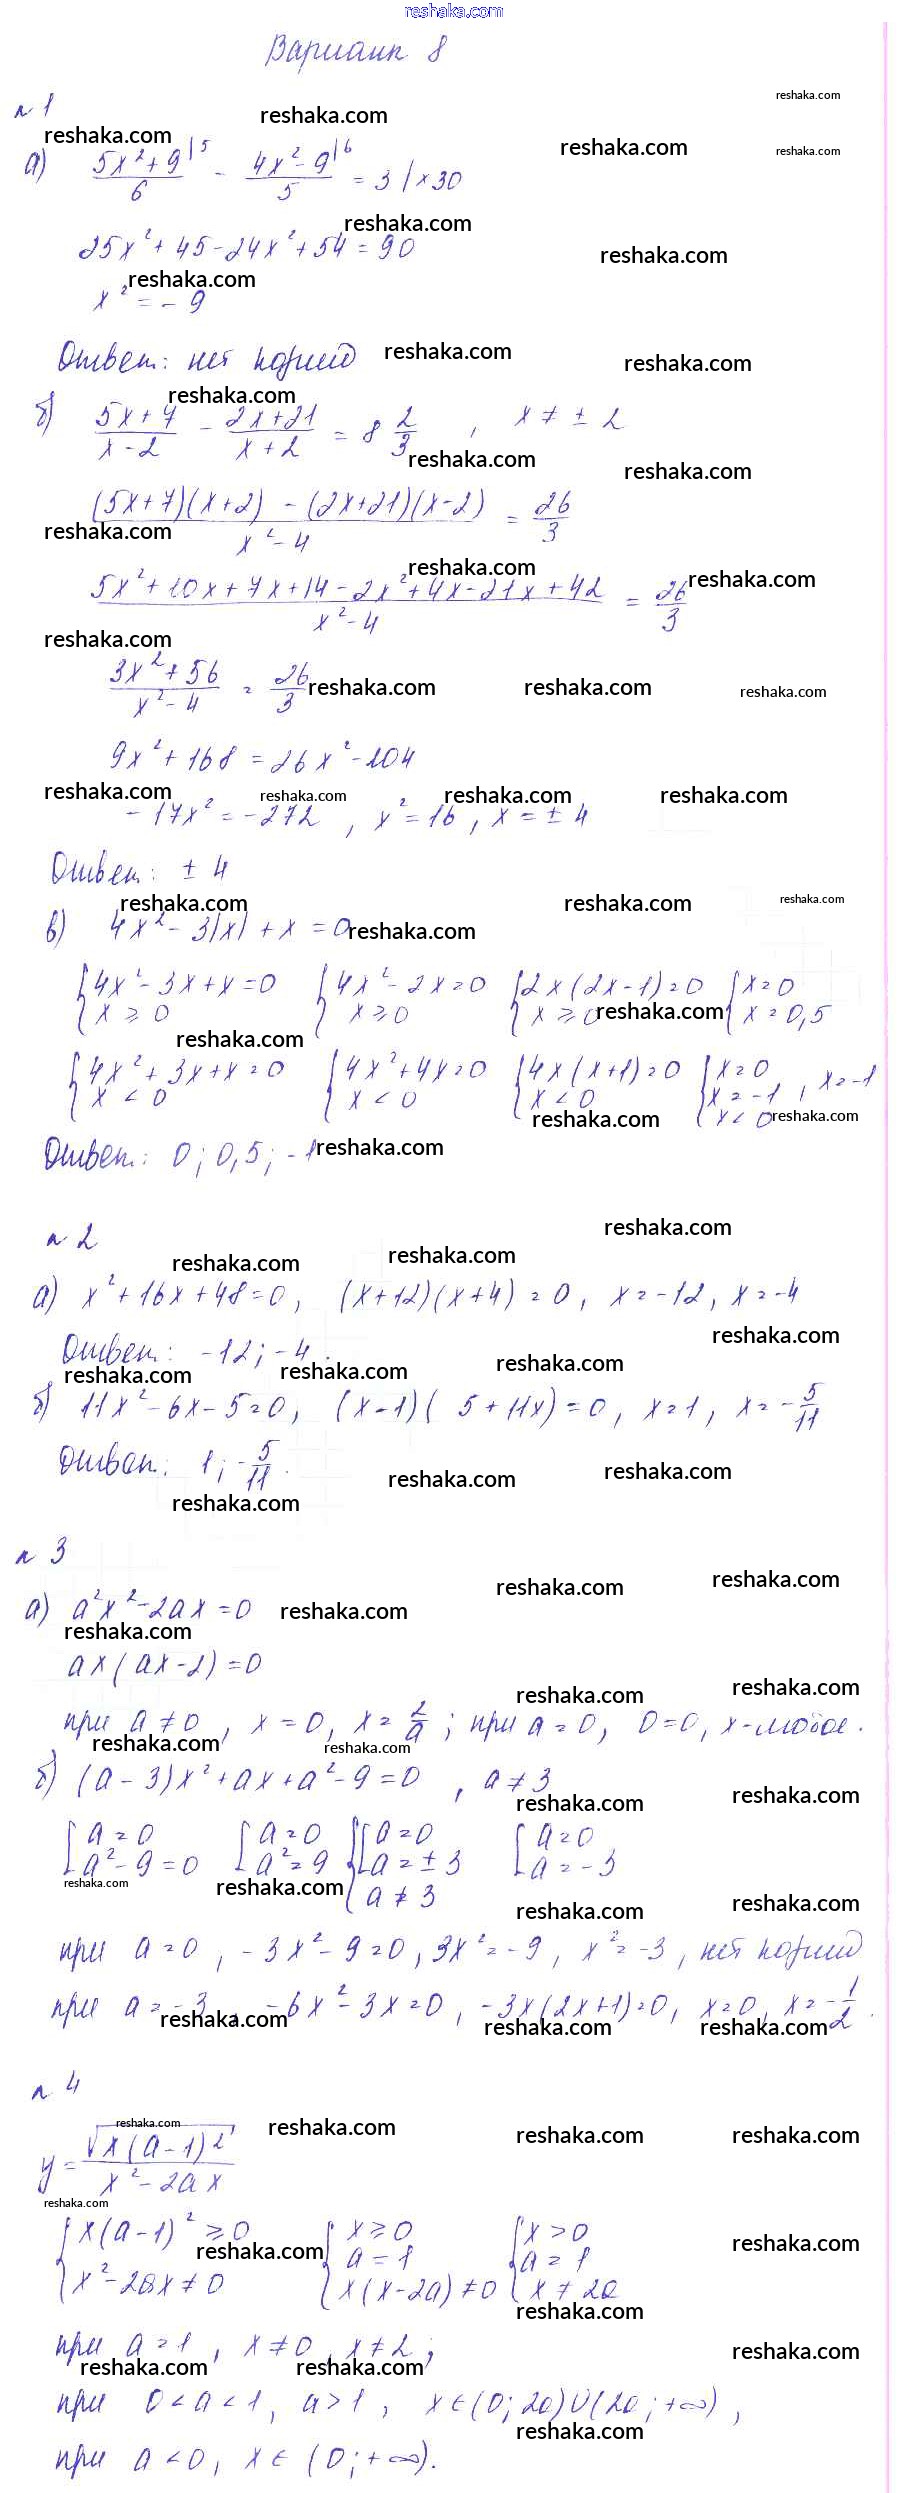 reshaka.com
Вариант 8
n 1
а) (5x² + 9)/6 |5 - (4x² - 9)/5 |6 = 3 / × 30
25x² + 45 - 24x² + 54 = 90
x² = - 9
Ответ: нет корней
б) (5x + 7)/(x - 2) - (2x + 21)/(x + 2) = 8 2/3 , x ≠ ± 2
((5x + 7)(x + 2) - (2x + 21)(x - 2))/(x² - 4) = 26/3
(5x² + 10x + 7x + 14 - 2x² + 4x - 21x + 42)/(x² - 4) = 26/3
(3x² + 56)/(x² - 4) = 26/3
9x² + 168 = 26x² - 104
- 17x² = - 272 , x² = 16 , x = ± 4
Ответ: ± 4
в) 4x² - 3|x| + x = 0
{4x² - 3x + x = 0 {4x² - 2x = 0 {2x(2x - 1) = 0 {x = 0
x ≥ 0 x ≥ 0 x ≥ 0 x = 0,5
{4x² + 3x + x = 0 {4x² + 4x = 0 {4x(x + 1) = 0 {x = 0
x < 0 x < 0 x < 0 x = -1 , x = -1
x < 0
Ответ: 0; 0,5; -1
n 2
а) x² + 16x + 48 = 0, (x + 12)(x + 4) = 0, x = -12, x = -4
Ответ: -12; -4.
б) 11x² - 6x - 5 = 0, (x - 1)( 5 + 11x) = 0, x = 1, x = - 5/11
Ответ: 1; - 5/11.
n 3
а) a²x² - 2ax = 0
ax(ax - 2) = 0
при a ≠ 0, x = 0, x = 2/a ; при a = 0, 0 = 0, x - любое.
б) (a - 3)x² + ax + a² - 9 = 0 , a ≠ 3
[a = 0 [a = 0 {[a = 0 [a = 0
a² - 9 = 0 a² = 9 a = ± 3 a = - 3
a ≠ 3
при a = 0, - 3x² - 9 = 0, 3x² = - 9, x² = - 3, нет корней
при a = - 3, - 6x² - 3x = 0, - 3x(2x + 1) = 0, x = 0, x = - 1/2.
n 4
y = √(x(a - 1)²)/(x² - 2ax)
{x(a - 1)² ≥ 0 {x ≥ 0 {x > 0
x² - 2ax ≠ 0 a = 1 a = 1
x(x - 2a) ≠ 0 x ≠ 2a
при a = 1, x ≠ 0, x ≠ 2;
при 0 < a < 1, a > 1, x ∈ (0; 2a) ∪ (2a; + ∞),
при a < 0, x ∈ (0; + ∞).